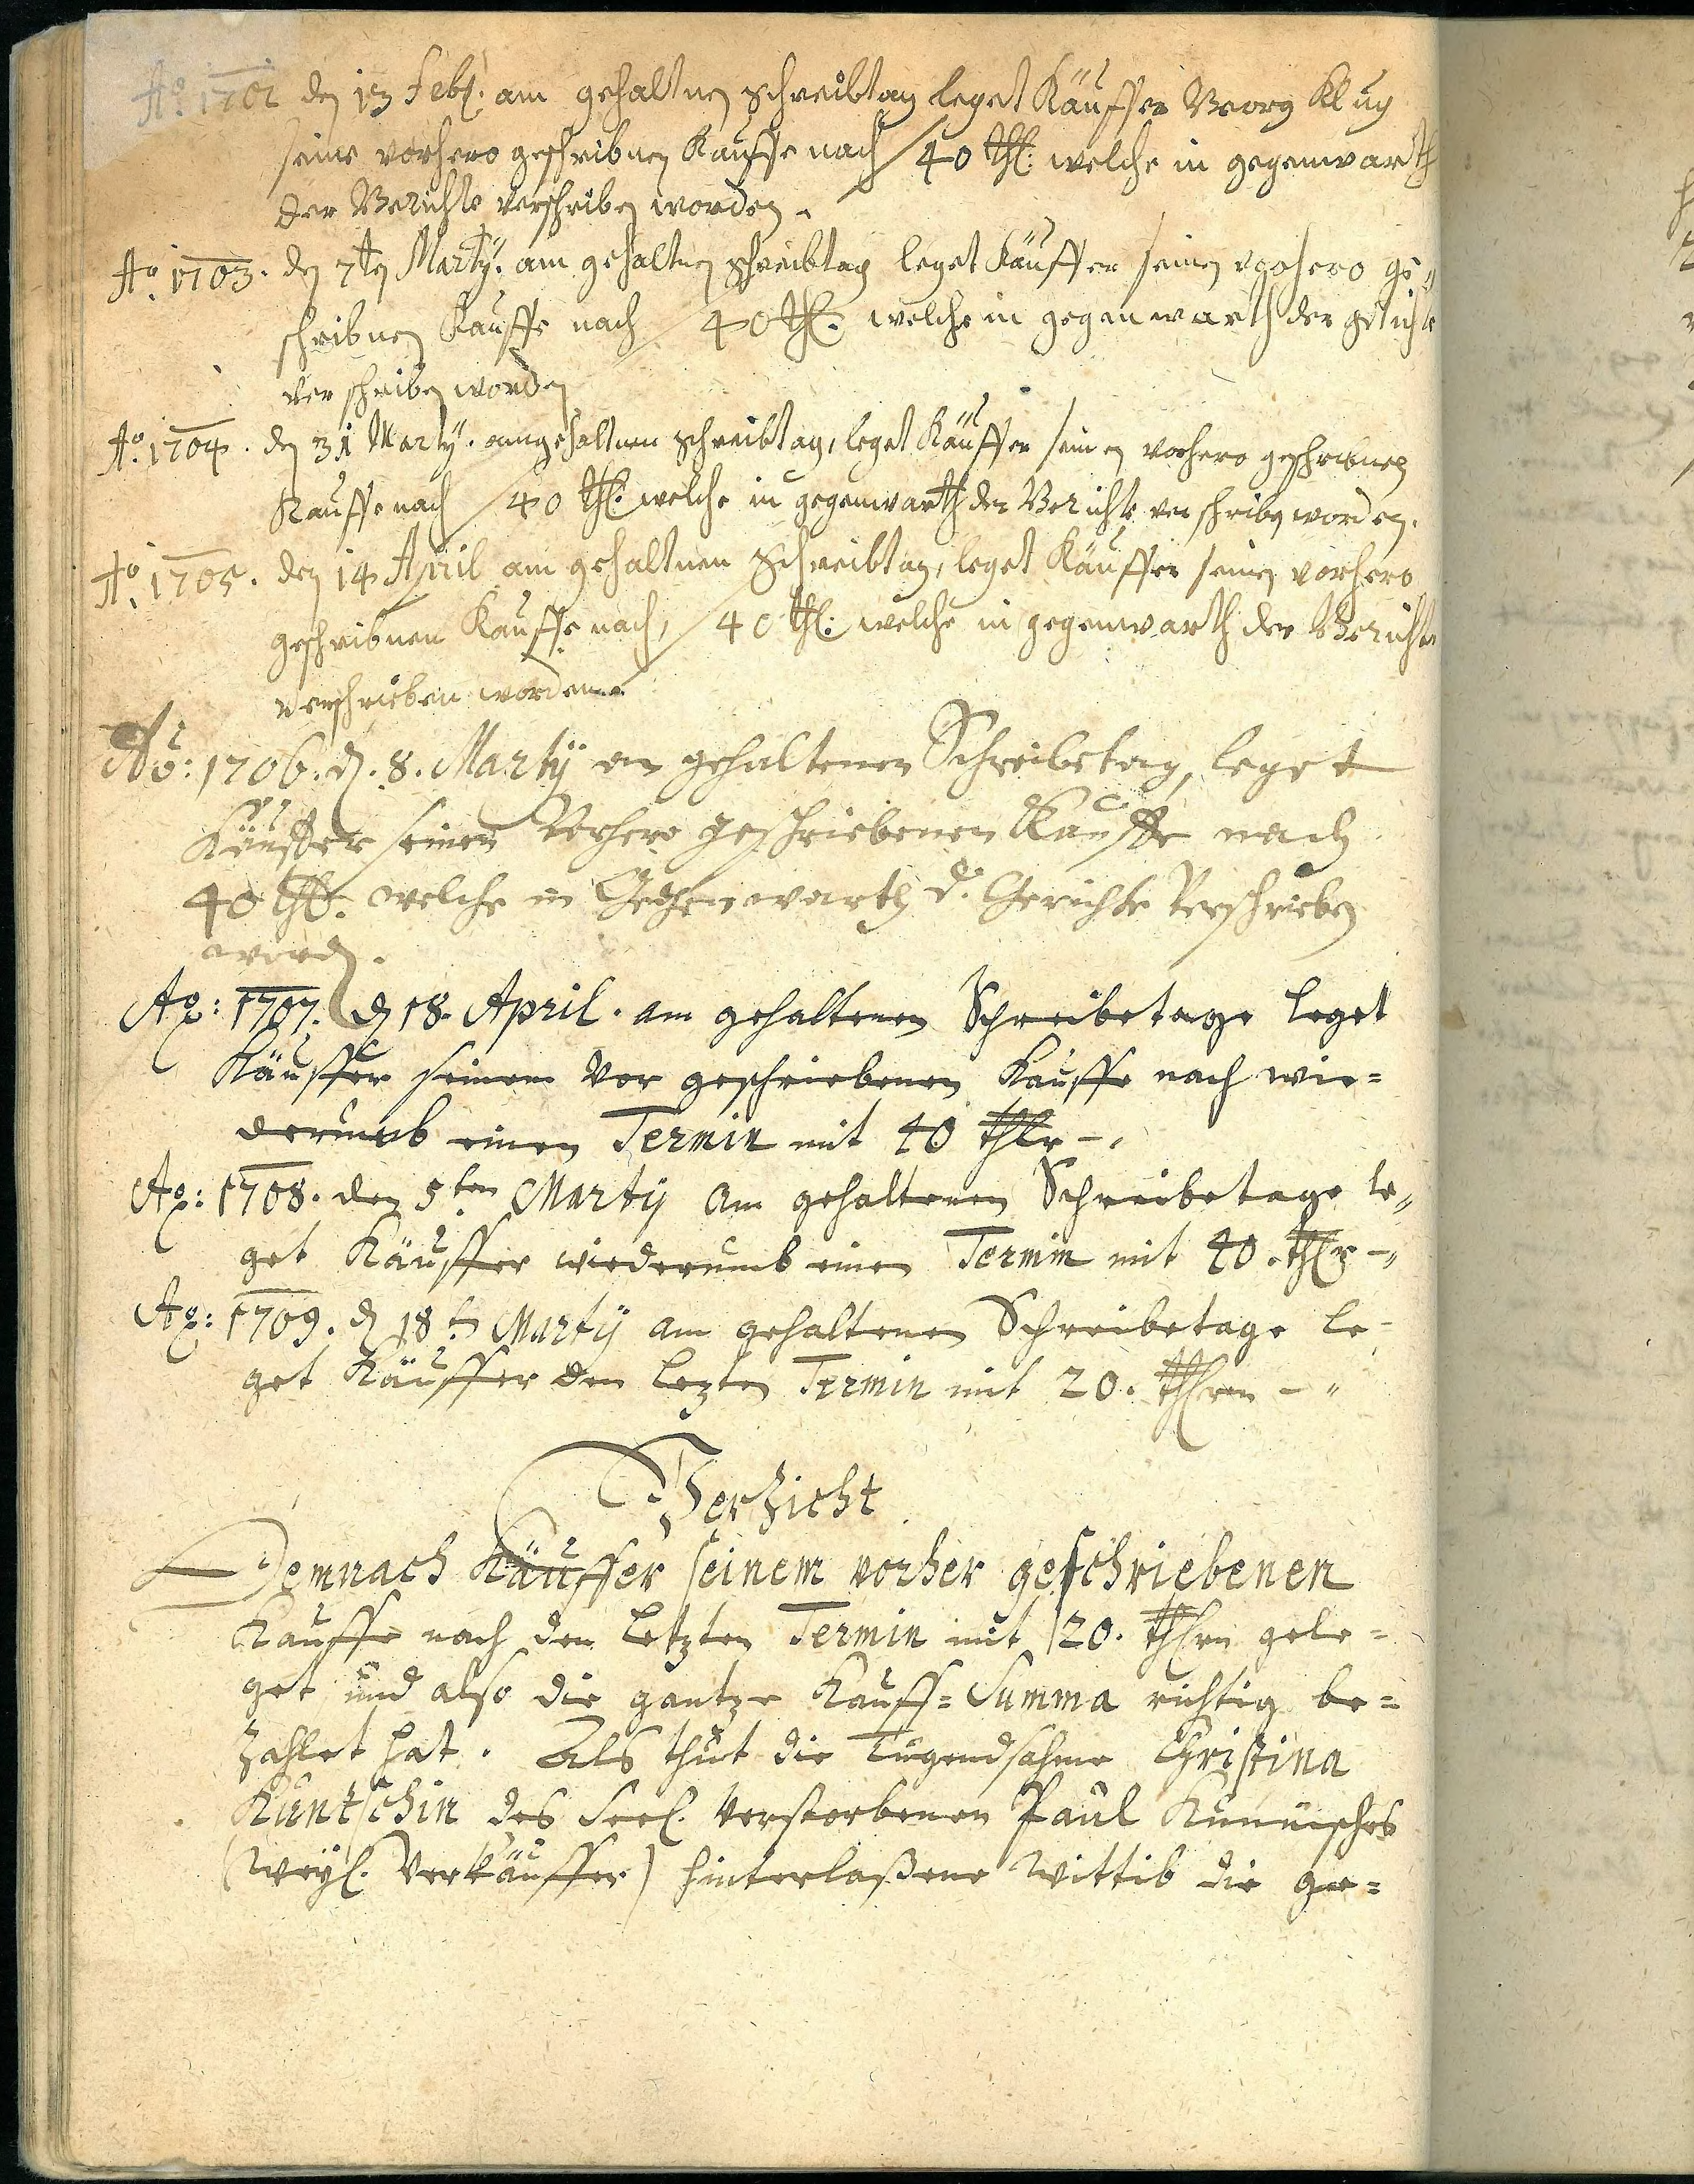 Ao. 1702 den 13 Febr. am gehaltnen schreibtag leget Käuffer Georg Klug
seine vorhero geschribnen Kauffe nach / 40 thl: welche in gegenwarth
der Gerichte verschriben worden.
Ao. 1703. den 7ten Marty. am gehaltnen schreibtag leget Käuffer seinen vorhero ge„
schribnen Kauffe nach / 40 thl. welche in gegenwarth der gerichte
verschriben worden
Ao. 1704. den 31 Marty. am gehaltnen schreibtag, leget Käuffer seinen vorhero geschribnen
Kauffe nach / 40 thl: welche in gegenwarth der Gerichte verschriben worden.
Ao. 1705. den 14 April am gehaltnen schreibtag, leget Käuffer seinen vorhero
geschribnen Kauffe nach, / 40 thl: welche in gegenwarth der Gerichte
verschrieben worden.
Ao: 1706. d. 8. Martÿ an gehaltenen Schreibetag, leget
Käuffer seinen Vorhero geschriebenen Kauffe nach
40 thl. welche in Gegenwarth d. Gerichte Verschrieben
word.
Ao: 1707. d 18. April. am gehaltenen Schreibetage leget
Käuffer seinem vor geschriebenen Kauffe nach wie=
derumb einen Termin mit 40 thlr -.
Ao: 1708. den 5ten Martij am gehaltenen Schreibetage le„
get Käuffer wiederumb einen Termin mit 40. thlr -„
Ao: 1709. d 18tn Martÿ am gehaltenen Schreibetage le-
get Käuffer den lezten Termin mit 20. thlren - „
Verzicht
Demnach Käuffer seinem vorher geschriebenen
Kauffe nach den letzten Termin mit 20. thlrn gele=
get und also die gantze Kauff=Summa richtig be=
zahlet hat. Als thut die Tugendsahme Christina
Kuntschin des Seel. verstorbenen Paul Kunnisches
(Weyl. Verkäuffer) hinterlaßene Wittib die ge=